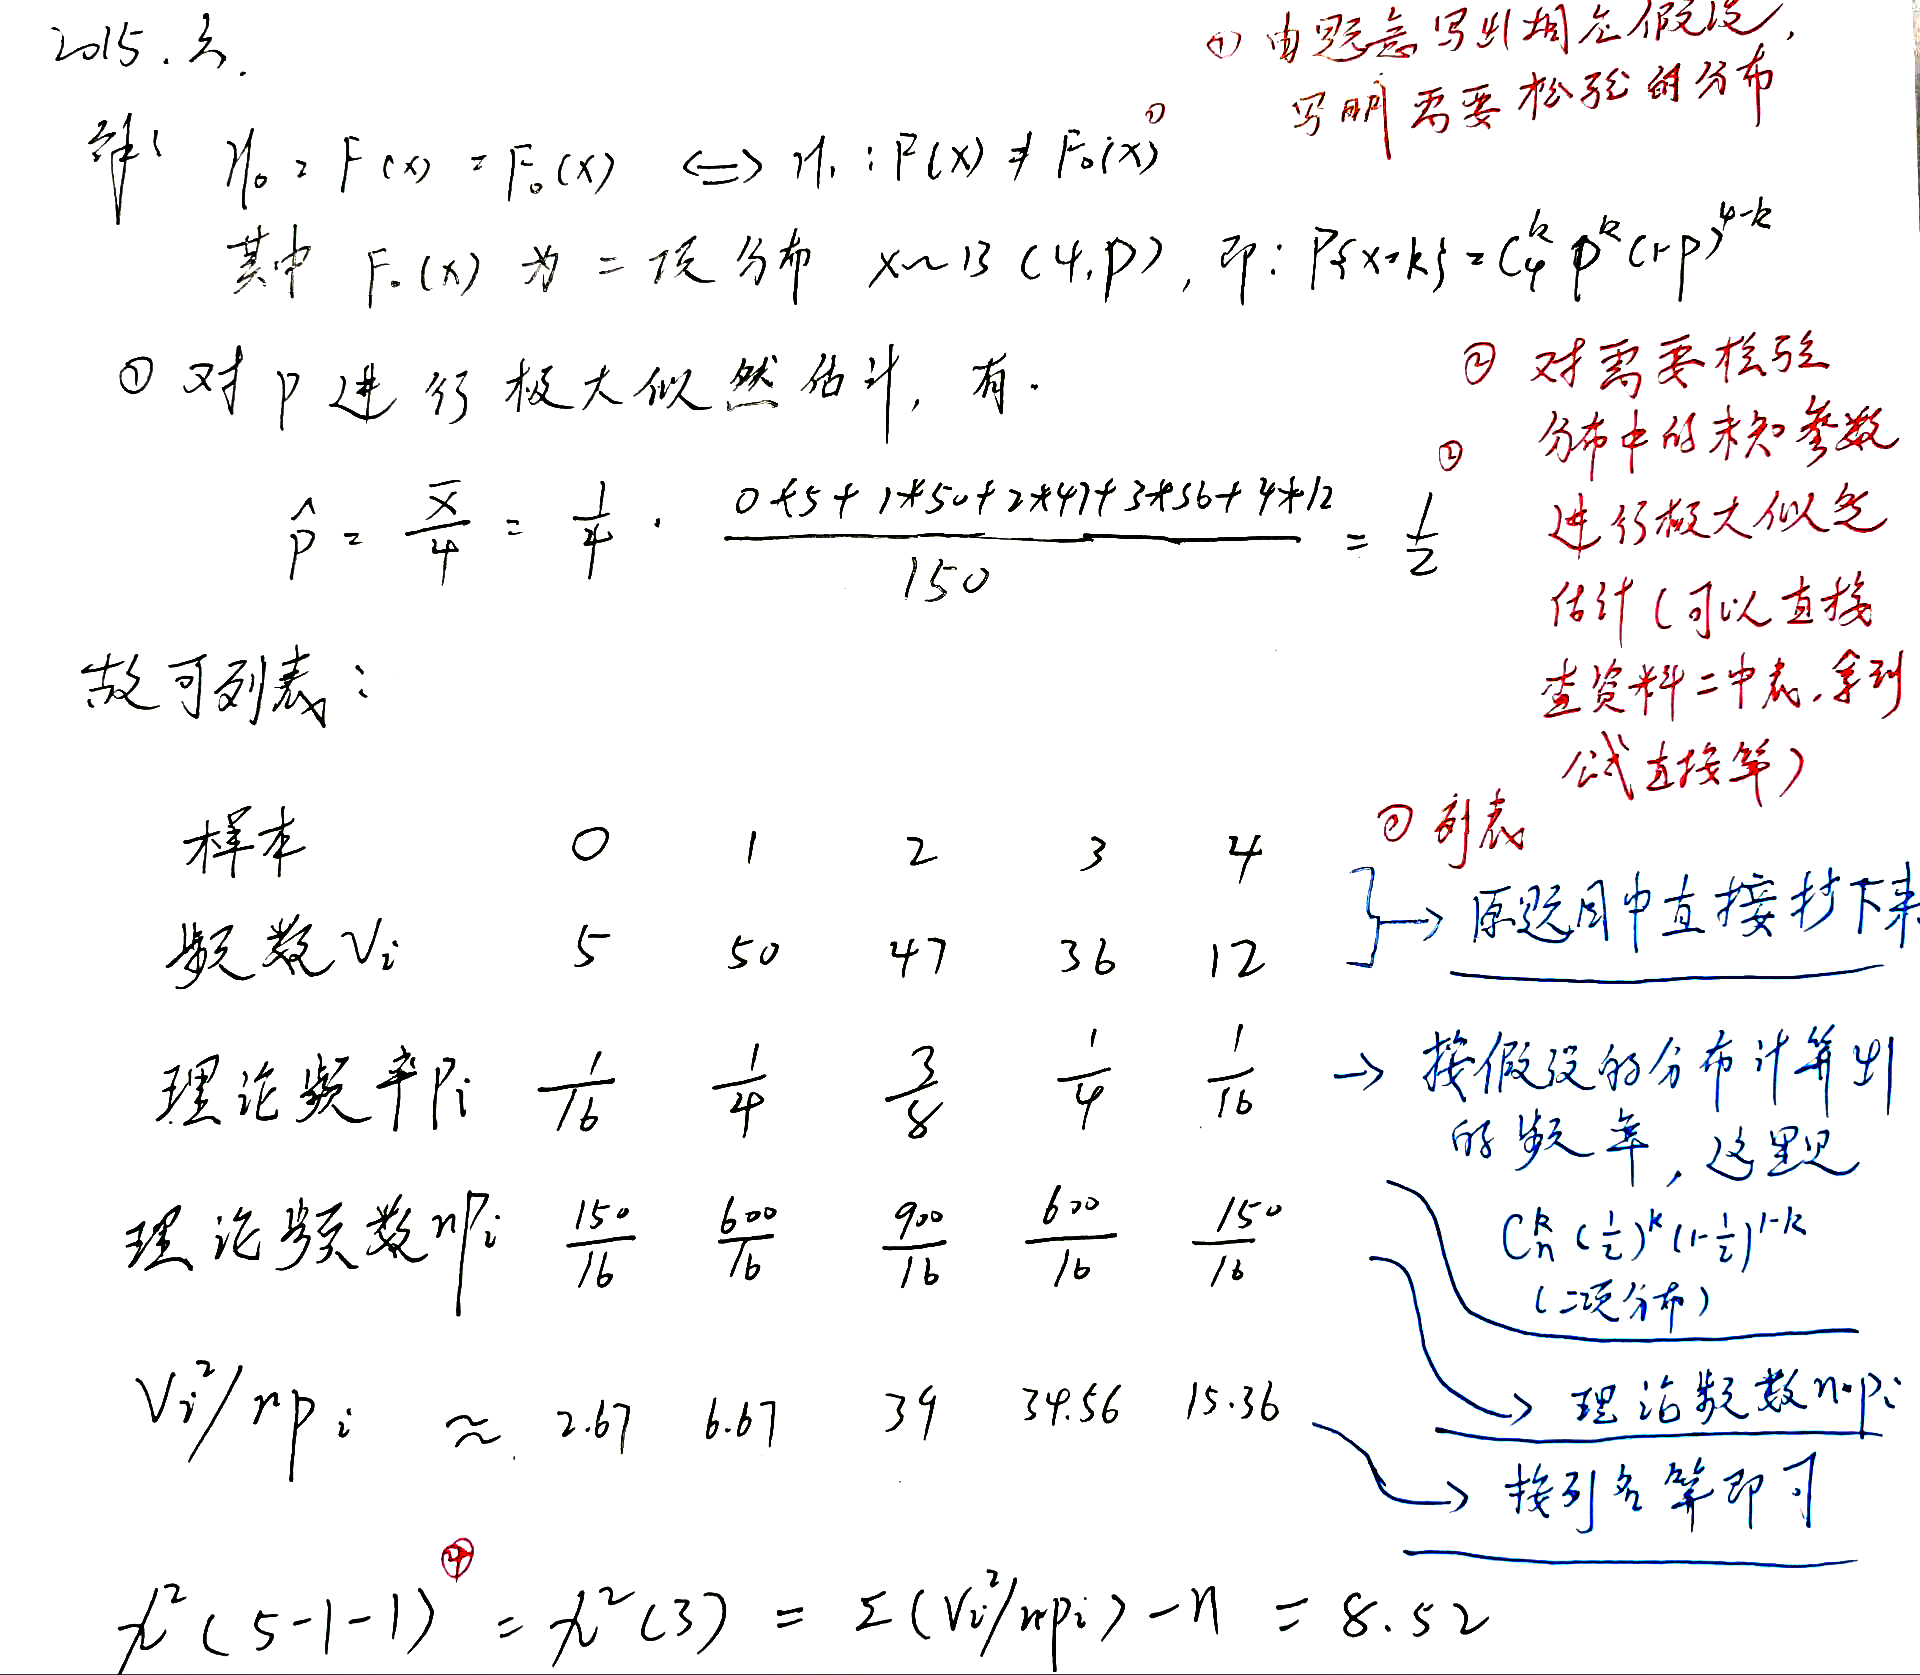 2015. 六.
① 由题意写出相应假设,
写明需要检验的分布
解: H₀: F(x) = F₀(x) <=> H₁: F(x) ≠ F₀(x) ①
其中 F₀(x) 为二项分布 X~B(4,p), 即: P{x=k} = C₄ᵏ pᵏ (1-p)⁴⁻ᵏ
① 对 p 进行极大似然估计, 有.
p̂ = x̄/4 = 1/4 · (0*5+1*50+2*47+3*36+4*12)/150 = 1/2 ②
② 对需要检验
分布中的未知参数
进行极大似然
估计(可以直接
查资料二中表,拿到
公式直接算)
故可列表:
③ 列表
样本 0 1 2 3 4
频数Vi 5 50 47 36 12
→ 原题目中直接抄下来
理论频率Pi 1/16 1/4 3/8 1/4 1/16
→ 按假设的分布计算出
的频率, 这里是
Cₙᵏ (1/2)ᵏ (1-1/2)¹⁻ᵏ
(二项分布)
理论频数npi 150/16 600/16 900/16 600/16 150/16
→ 理论频数n·pi
Vi²/npi ≈ 2.67 6.67 39 34.56 15.36
→ 按列名算即可
χ²(5-1-1) ④ = χ²(3) = Σ(Vi²/npi) - n = 8.52